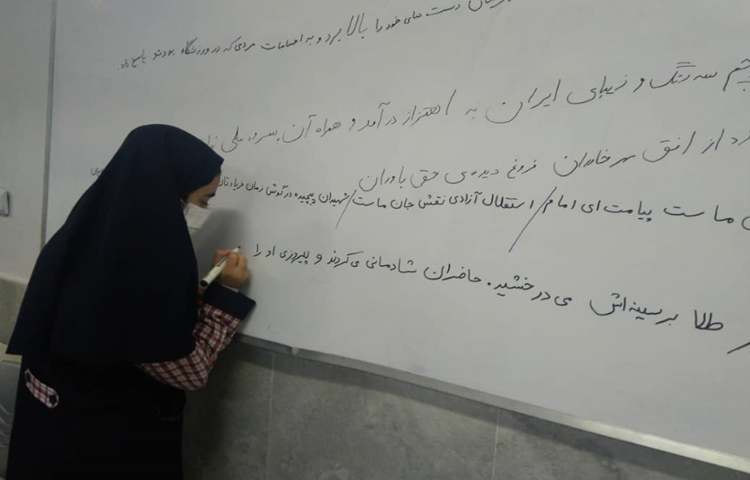 دست های خود را بالا برد و به احساسات مردمی که در ورزشگاه بودند پاسخ داد
پرچم سه رنگ و زیبای ایران به اهتزاز درآمد و همراه آن سرود ملی
از افق مهر خاوران فروغ دیده‌ی حق باوران
ما ست پیامت ای امام / استقلال آزادی نقش جان ماست / شهیدان پیچیده در گوش زمان فریادتان
طلا بر سینه‌اش می درخشید. حاضران شادمانی می کردند و پیروزی او را